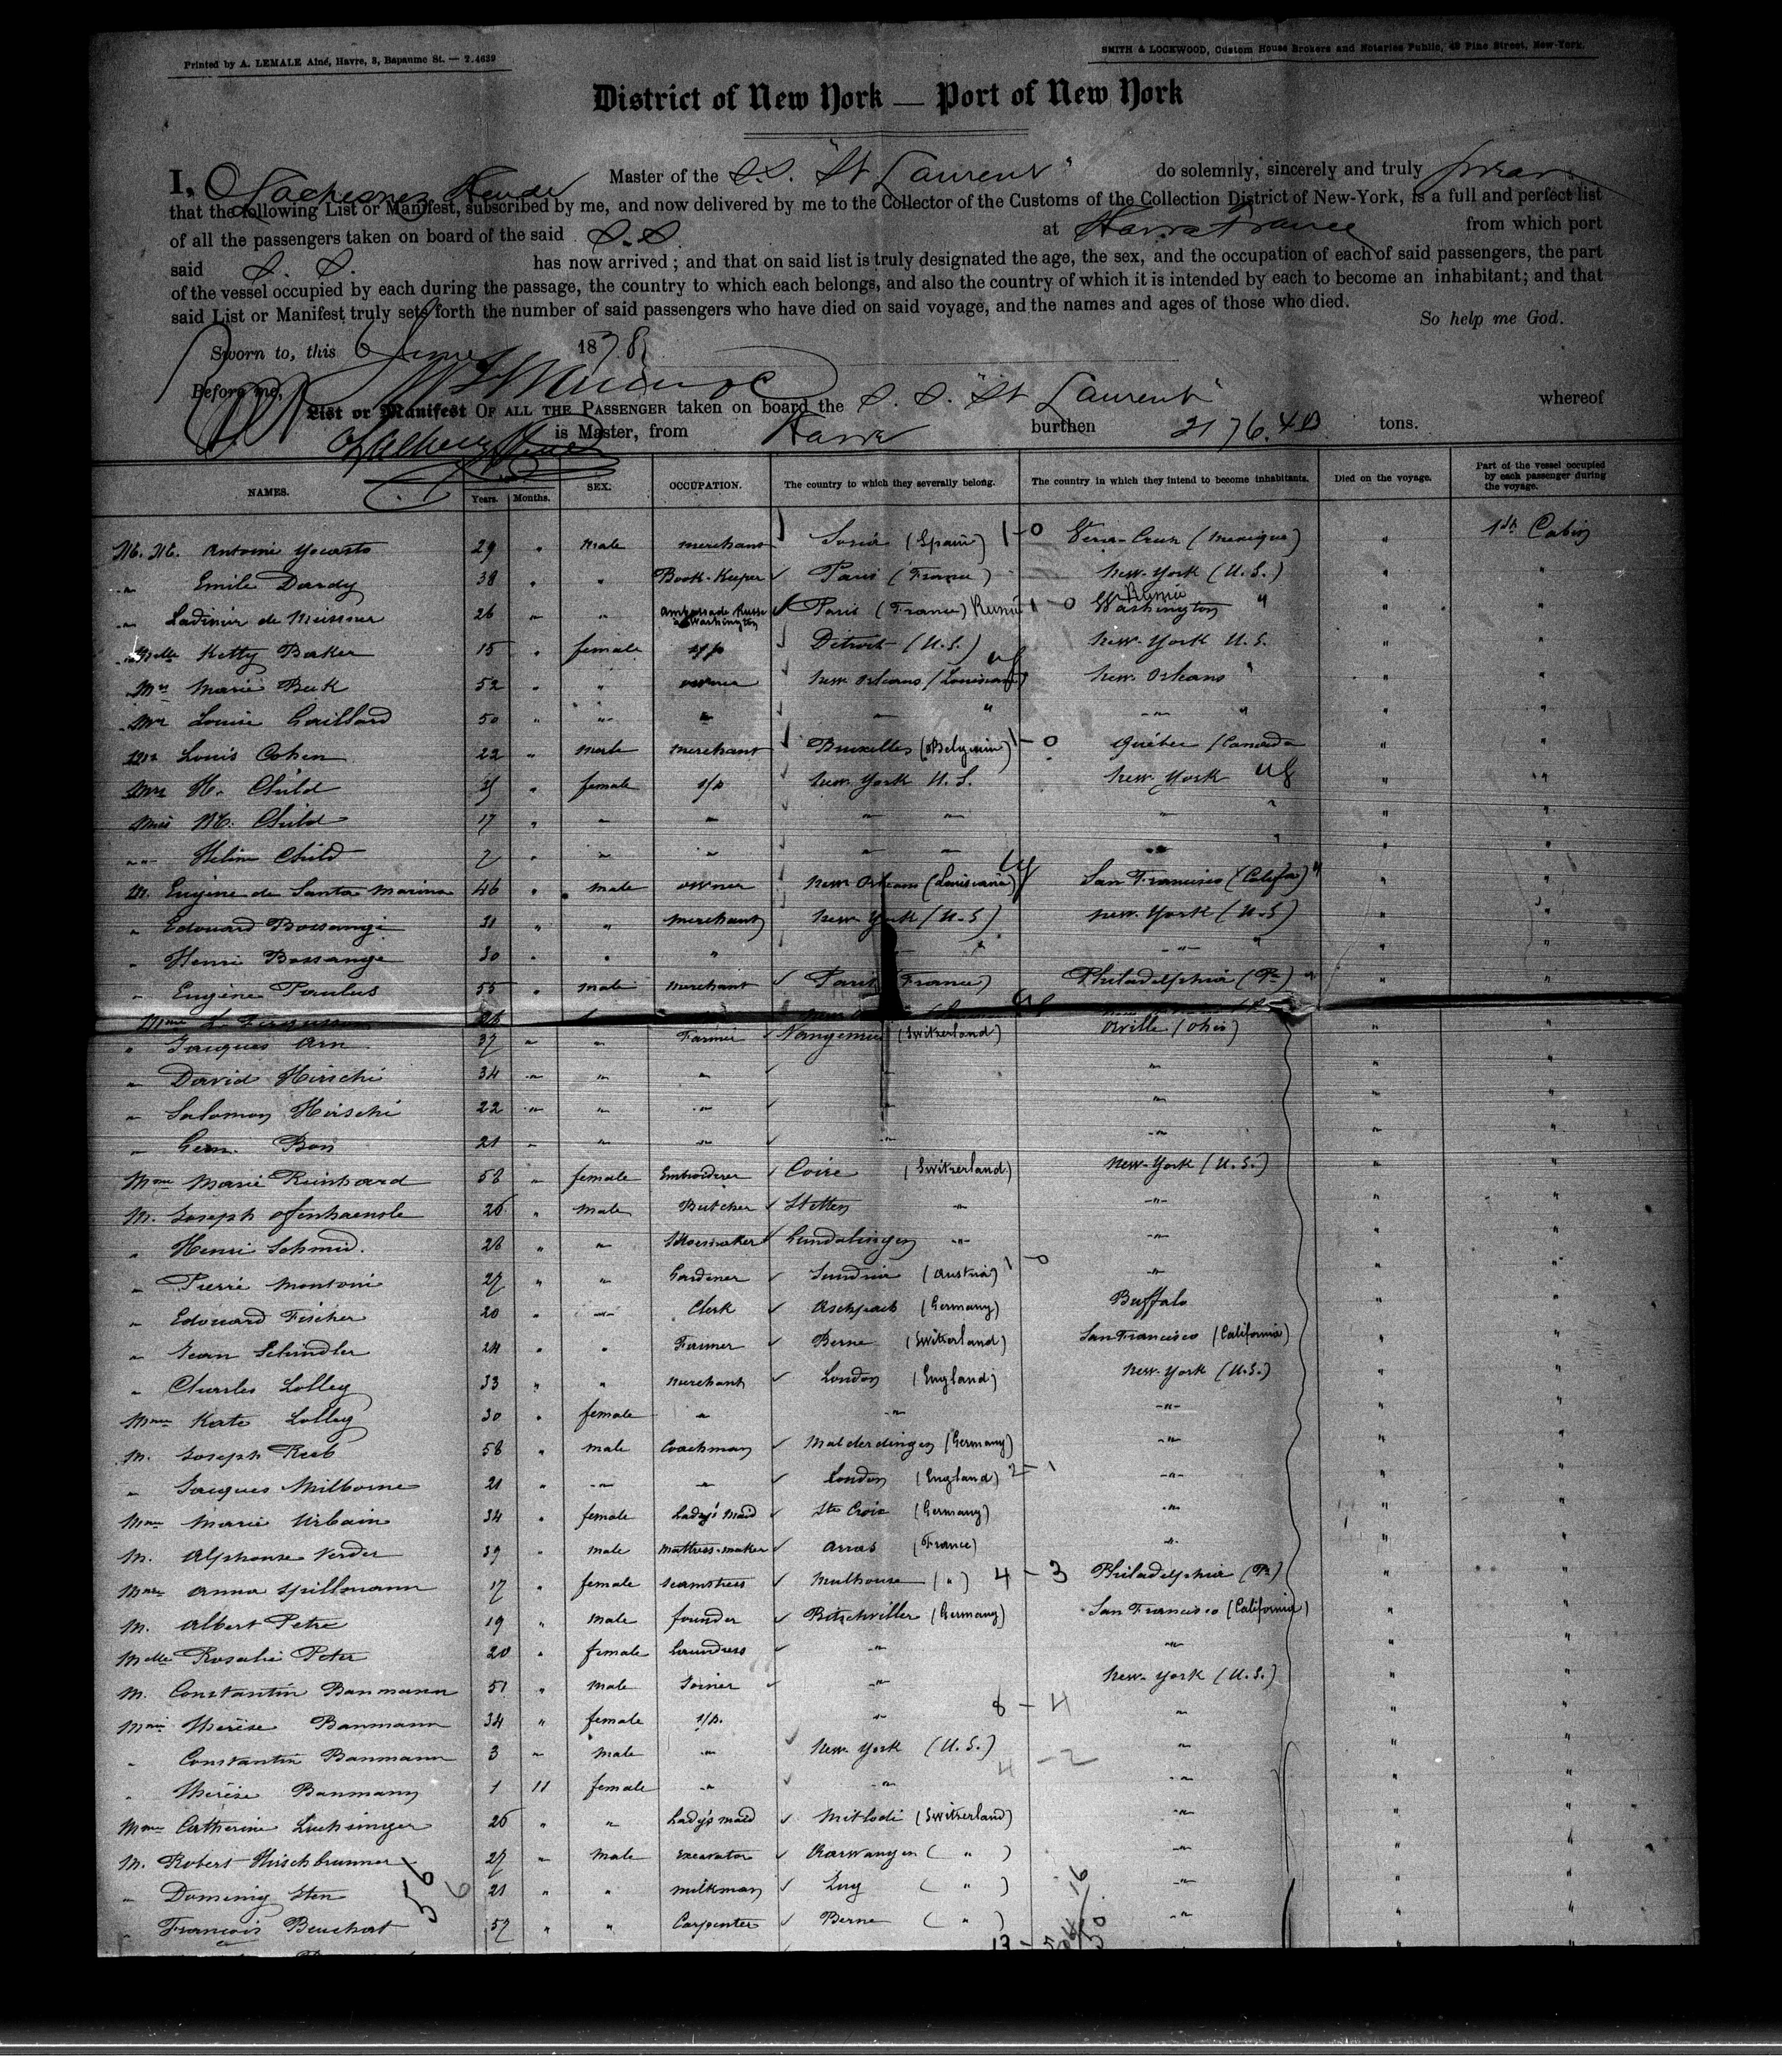 Printed by A. LEMALE Aîné, Havre, 3, Bapaume St. — 7.4639
SMITH & LOCKWOOD, Custom House Brokers and Notaries Public, 49 Pine Street, New-York.
District of New York — Port of New York
I, Master of the S.S. "St Laurent" do solemnly, sincerely and truly swear
that the following List or Manifest, subscribed by me, and now delivered by me to the Collector of the Customs of the Collection District of New-York, is a full and perfect list
of all the passengers taken on board of the said S.S. at Havre France from which port
said S. S. has now arrived ; and that on said list is truly designated the age, the sex, and the occupation of each of said passengers, the part
of the vessel occupied by each during the passage, the country to which each belongs, and also the country of which it is intended by each to become an inhabitant; and that
said List or Manifest truly sets forth the number of said passengers who have died on said voyage, and the names and ages of those who died.
So help me God.
Sworn to, this 6 June 1878
Before me,
List or Manifest OF ALL THE PASSENGER taken on board the S. S. "St Laurent" whereof
is Master, from Havre burthen 2176.40 tons.
NAMES. Years. Months. SEX. OCCUPATION. The country to which they severally belong. The country in which they intend to become inhabitants. Died on the voyage. Part of the vessel occupied by each passenger during the voyage.
M. M. Antoine 29 " Male merchant Soria (Spain) 1-0 Vera-Cruz (Mexique) " 1st Cabin
" Emile Dardy 38 " " Book-Keeper Paris (France) New-York (U.S.) " "
" Ladimir de Meissner 26 " " Ambassade Russe a Washington Paris (France) Russie 1-0 Russie Washington " " "
Melle Ketty Baker 15 " female s/p Detroit (U.S.) New-York U.S. " "
Mme Marie Beck 52 " " owner New Orleans (Louisiana) New-Orleans " " "
Louise Gaillard 50 " " " " " " " "
Louis Cohen 22 " male merchant Bruxelles (Belgium) 1-0 Québec (Canada " "
H. Child " female s/p New-York U.S. New-York " "
Miss M. Child 17 " " " " " " " "
" Child 2 " " " " " " " "
M. Eugène de Santa Marina 46 " male owner New Orleans (Louisiana) San Francisco (Califa) " "
" Edouard Bossange 31 " " merchant New-York (U.S) New-York (U.S) " "
" Henri Bossange 30 " " " " " " "
" Eugène Paulus 55 " male merchant Paris (France) Philadelphia (Pa) " "
Mme L. Fergusson
" Jacques Arn 37 " " Farmer (Switzerland) Orville (Ohio) " "
" David Hirschi 34 " " " " " "
" Salomon Hirschi 22 " " " " " "
" 21 " " " " " " "
Mme Marie Reinhard 58 " female Embroiderer Coire (Switzerland) New-York (U.S.) " "
M. Joseph 26 " male Butcher Stetten " " " "
" Henri Schmid. 28 " " Shoemaker " " " "
" Pierre Montoni 27 " " Gardener (Austria) 1-0 " " "
" Edouard Fischer 20 " " Clerk (Germany) Buffalo " "
" Jean Schindler 24 " " Farmer Berne (Switzerland) San Francisco (California) " "
" Charles Lolley 33 " " merchant London (England) New-York (U.S.) " "
Mme Kate Lolley 30 " female " " " " "
M. Joseph Reeb 58 " male Coachman Malderdingen (Germany) " " "
" Jacques Milborne 21 " " " London (England) 2-1 " " "
Mme Marie Urbain 34 " female Lady's Maid Ste Croix (Germany) " " "
M. Alphonse Verder 39 " male mattress-maker Arras (France) " " "
Mme Anna Spillmann 17 " female seamstress Mulhouse (") 4-3 Philadelphia (Pa) " "
M. Albert Petre 19 " male founder Bitschviller (Germany) San Francisco (California) " "
Melle Rosalie Peter 20 " female Laundress " " " "
M. Constantin Banmann 51 " male Joiner " New-York (U.S.) " "
Mme Thérèse Banmann 34 " female s/p. " 8-4 " " "
" Constantin Banmann 3 " male " New-York (U.S.) " " "
" Thérèse Banmann 1 11 female " " 4-2 " " "
Mme Catherine Luchsinger 26 " " Lady's maid Mitlodi (Switzerland) " " "
M. Robert Hirschbrunner 27 " male Excavator Aarwangen ( " ) " " "
" Sten 21 " " milkman Zug ( " ) " " "
" François Beuchat 57 " " Carpenter Berne ( " ) " " "
56 6